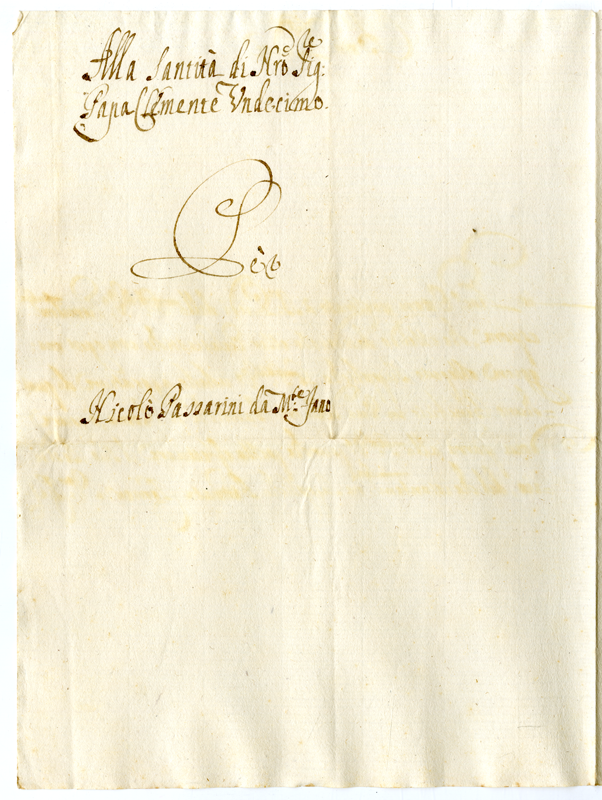 Alla Santità di Nrõ Sig:re
Papa Clemente Undecimo.
Per
Nicolò Passarini da M:te Jano